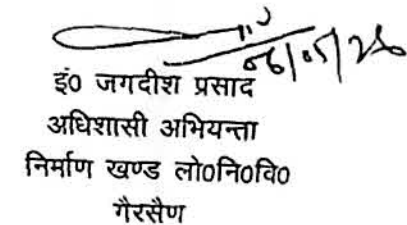 06/05/26
इं० जगदीश प्रसाद
अधिशासी अभियन्ता
निर्माण खण्ड लो०नि०वि०
गैरसैण